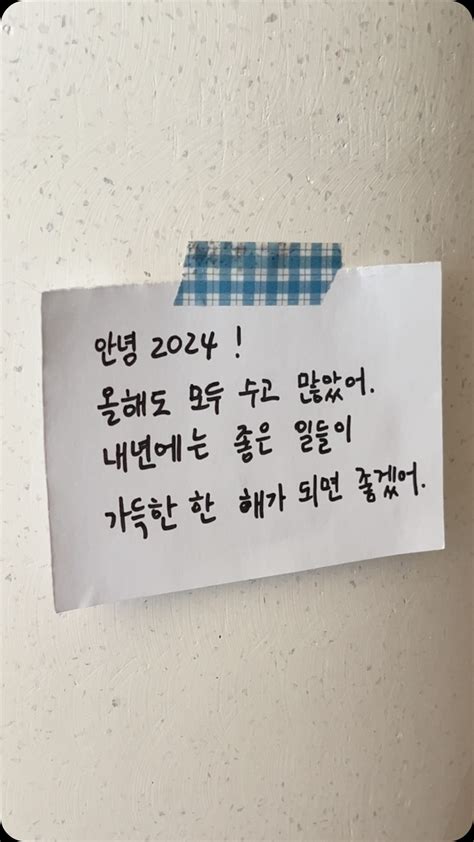 안녕 2024 !
올해도 모두 수고 많았어.
내년에는 좋은 일들이
가득한 한 해가 되면 좋겠어.